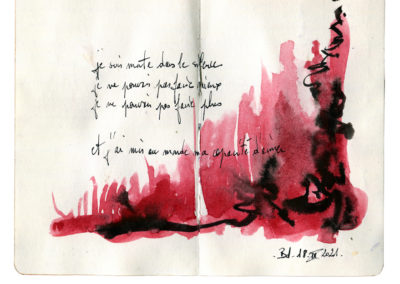 je suis dans le silence
je ne pouvais pas faire mieux
je ne pouvais pas faire plus
et j'ai mis au monde ma capacité d'aimer
Bd. 18. 2021.